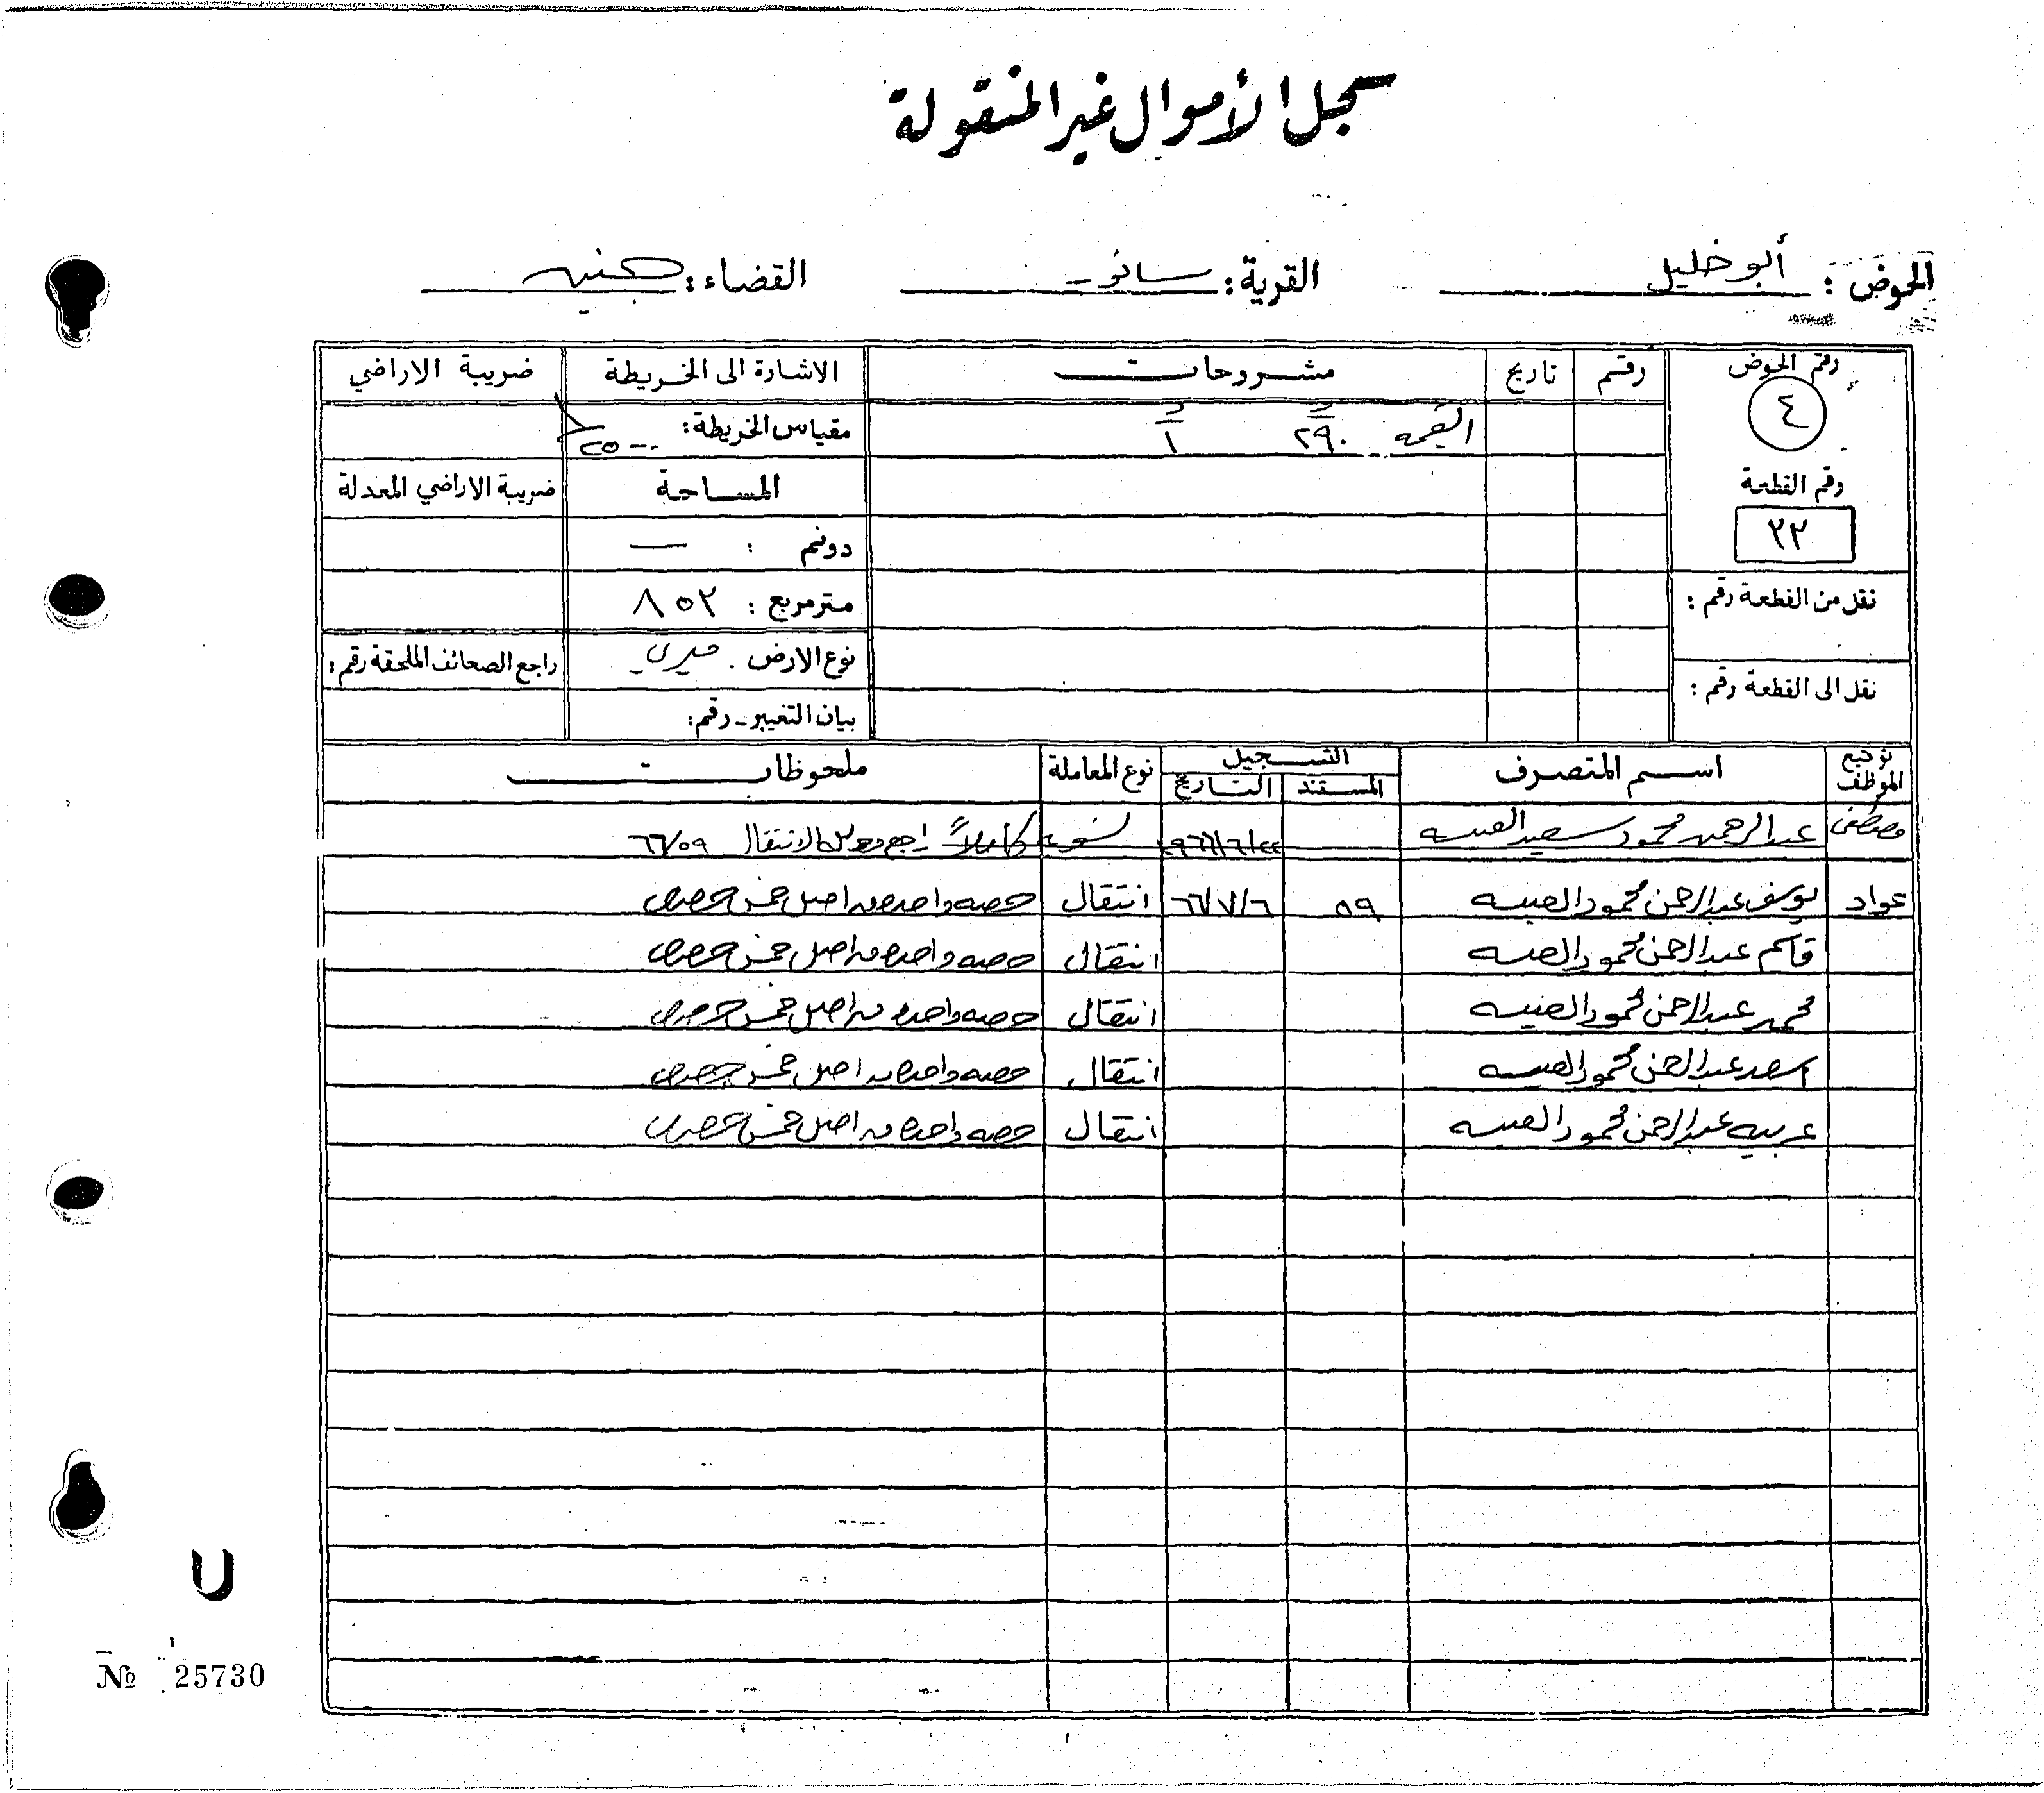 سجل الأموال غير المنقولة
الحوض : أبو خليل القرية : سانور القضاء : جنين
رقم الحوض رقم تاريخ مشروحات الاشارة الى الخريطة ضريبة الاراضي
٤ القيمة ٢٩٠ ١ مقياس الخريطة : ١/٢٥٠٠
رقم القطعة المساحة ضريبة الاراضي المعدلة
٢٢ دونم : —
نقل من القطعة رقم : متر مربع : ٨٥٢
نوع الارض . ميري راجع الصحائف الملحقة رقم :
نقل الى القطعة رقم : بيان التغيير - رقم :
توقيع الموظف اسم المتصرف التسجيل نوع المعاملة ملحوظات
المستند التاريخ
مصطفى عبد الرحمن محمود سعيد ٩٦٦/٦/٢٢ تسوية كاملاً راجع الانتقال ٦٦/٥٩
عواد يوسف عبد الرحمن محمود ٥٩ ٦٦/٧/٦ انتقال حصه واحده من اصل خمس حصص
قاسم عبد الرحمن محمود انتقال حصه واحده من اصل خمس حصص
محمد عبد الرحمن محمود انتقال حصه واحده من اصل خمس حصص
اسعد عبد الرحمن محمود انتقال حصه واحده من اصل خمس حصص
عربيه عبد الرحمن محمود انتقال حصه واحده من اصل خمس حصص
№ 25730